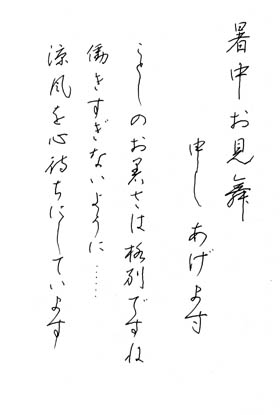 暑中お見舞
申しあげます
ことしのお暑さは格別ですね
働きすぎないように……
涼風を心待ちにしています